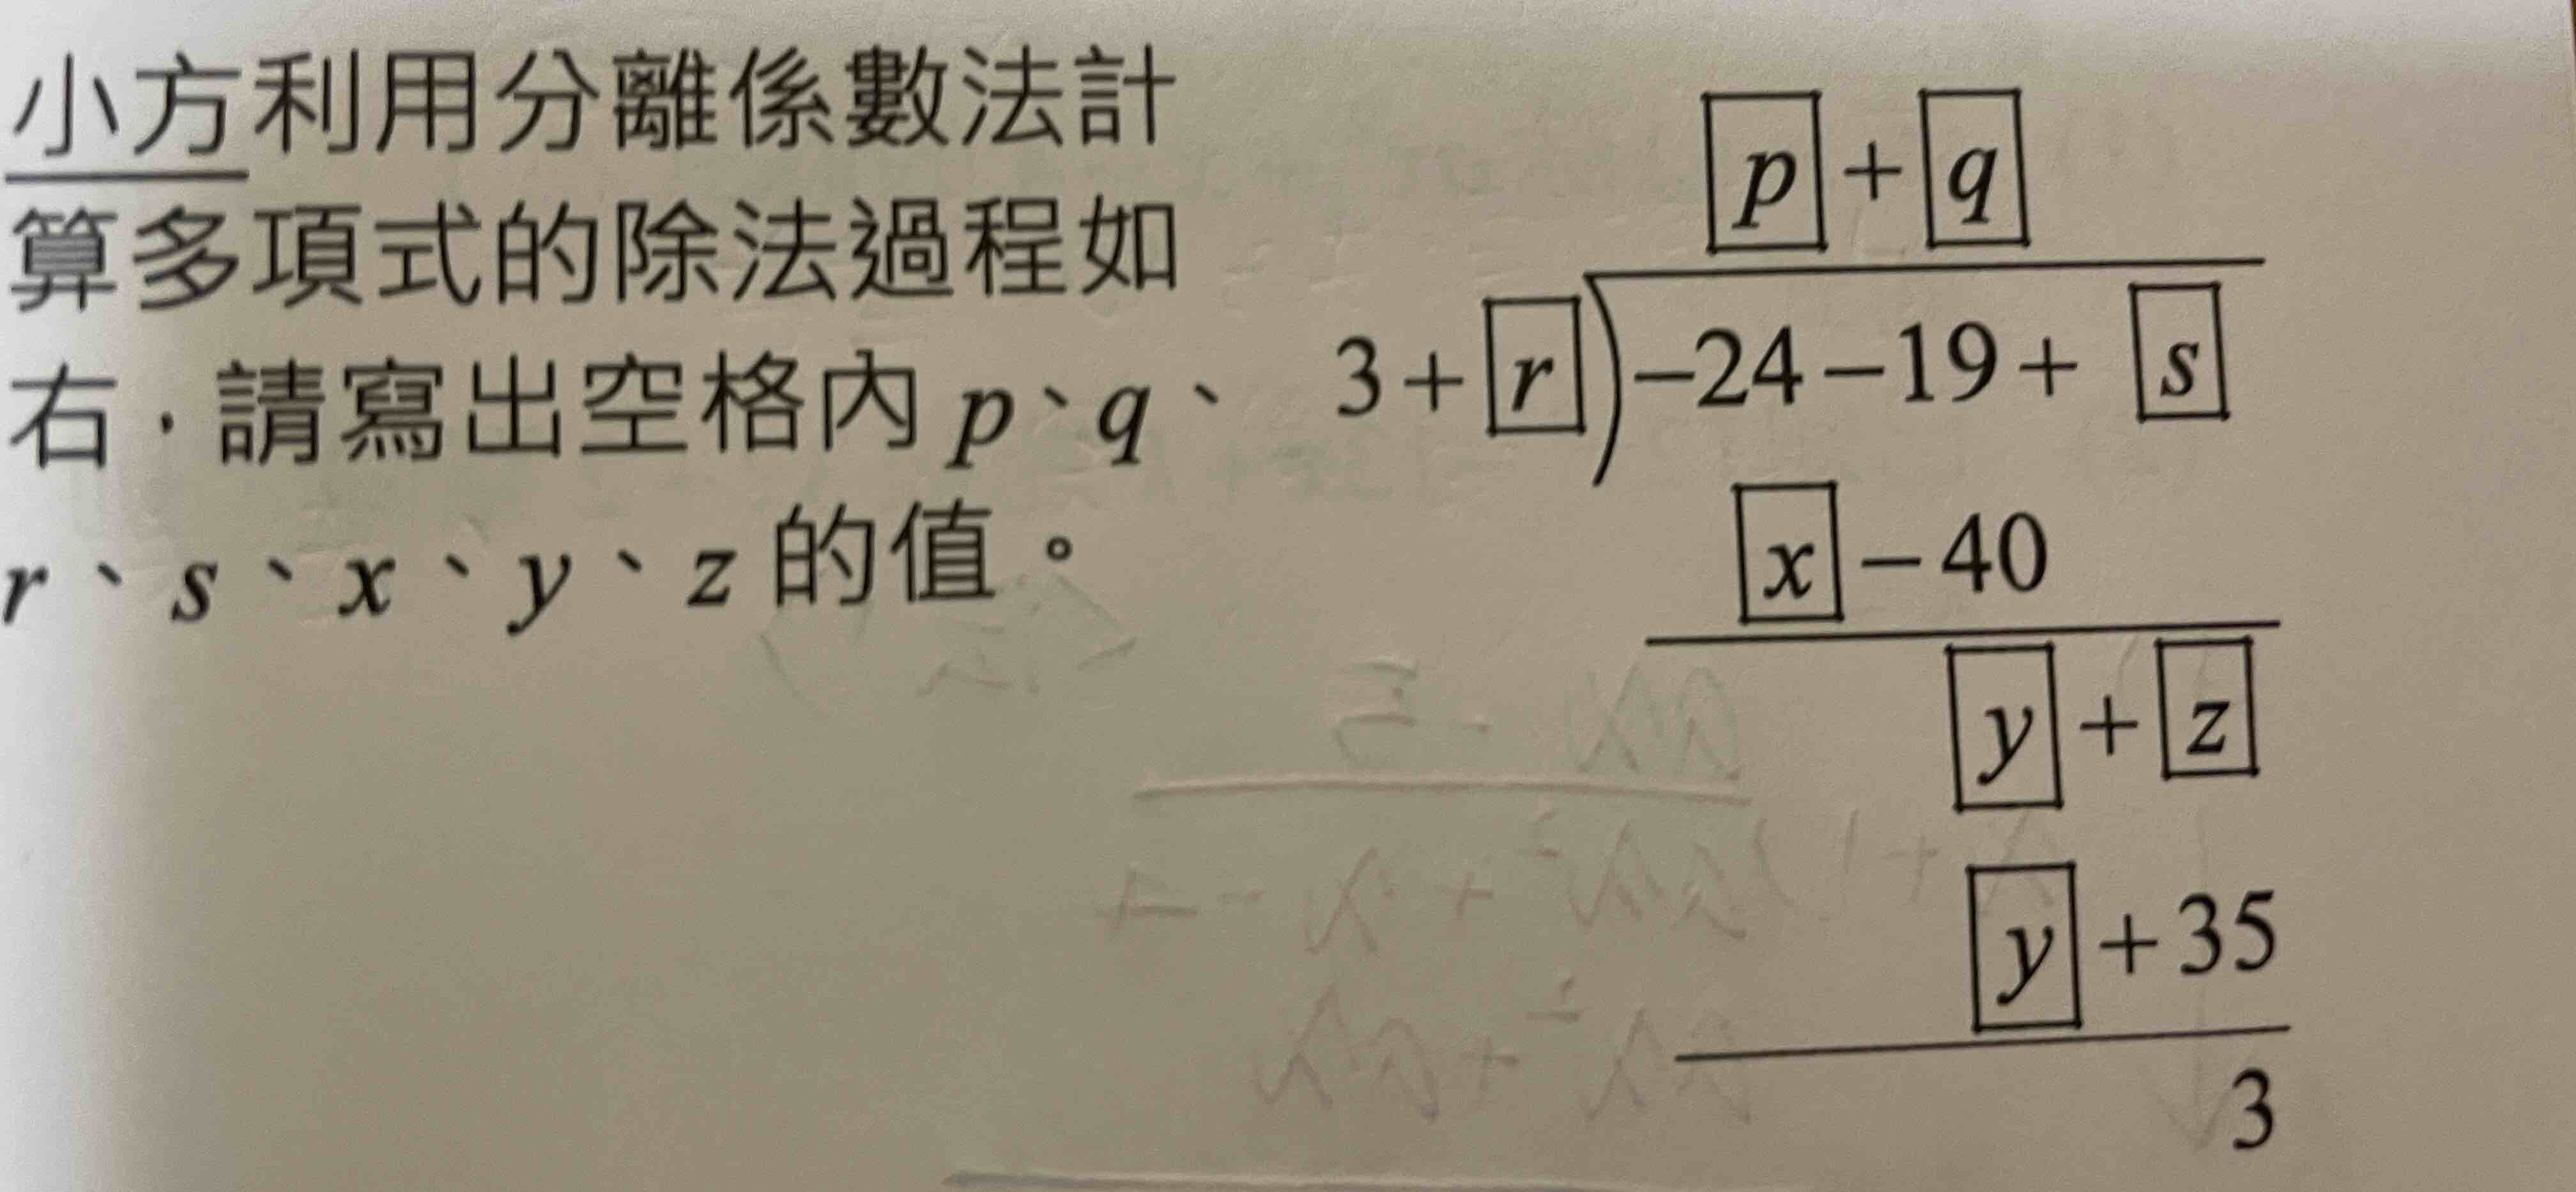 小方利用分離係數法計
算多項式的除法過程如
右,請寫出空格內 p、q、
r、s、x、y、z 的值。
p + q
3 + r ) −24 − 19 + s
x − 40
y + z
y + 35
3